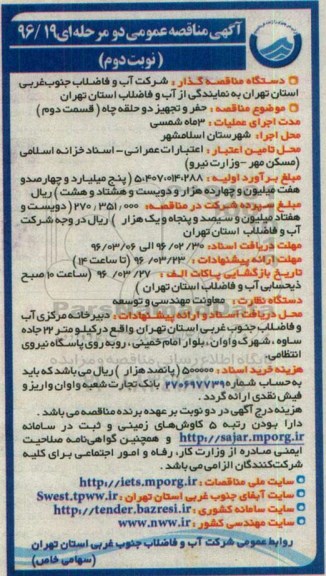 آگهی مناقصه عمومی دو مرحله‌ای ۹۶/۱۹
(نوبت دوم)
دستگاه مناقصه گذار : شرکت آب و فاضلاب جنوب‌غربی
استان تهران به نمایندگی از آب و فاضلاب استان تهران
موضوع مناقصه : حفر و تجهیز دو حلقه چاه ( قسمت دوم )
مدت اجرای عملیات : ۳ماه شمسی
محل اجرا: شهرستان اسلامشهر
محل تامین اعتبار : اعتبارات عمرانی - اسناد خزانه اسلامی
(مسکن مهر -وزارت نیرو)
مبلغ برآورد اولیه : ۵/۴۰۷/۰۱۴/۲۸۸ ( پنج میلیارد و چهارصد و
هفت میلیون و چهارده هزار و دویست و هشتاد و هشت ) ریال
مبلغ سپرده شرکت در مناقصه: ۲۷۰/۳۵۱/۰۰۰ (دویست و
هفتاد میلیون و سیصد و پنجاه و یک هزار ) ریال در وجه شرکت
آب و فاضلاب استان تهران
مهلت دریافت اسناد: ۹۶/۰۲/۳۰ الی ۹۶/۰۳/۰۶
مهلت ارائه پیشنهادات : ۹۶/۰۳/۲۳ (تا ساعت ۱۴)
تاریخ بازگشایی پاکات الف : ۹۶/۰۳/۲۷ (ساعت ۱۰ صبح
ذیحسابی آب و فاضلاب استان تهران )
دستگاه نظارت : معاونت مهندسی و توسعه
محل دریافت اسناد و ارائه پیشنهادات : دبیرخانه مرکزی آب
و فاضلاب جنوب غربی استان تهران واقع در کیلومتر ۲۲ جاده
ساوه ،شهرک واوان، بلوار امام خمینی ، روبه روی پاسگاه نیروی
انتظامی.
هزینه خرید اسناد : ۵۰۰۰۰۰ (پانصد هزار ) ریال می باشد که باید
به حساب شماره ۲۷۰۶۹۷۷۳۹ بانک تجارت شعبه واوان واریز و
فیش نقدی ارائه گردد .
هزینه درج آگهی در دو نوبت بر عهده برنده مناقصه می باشد .
دارا بودن رتبه ۵ کاوش‌های زمینی و ثبت در سامانه
http://sajar.mporg.ir و همچنین گواهی‌نامه صلاحیت
ایمنی صادره از وزارت کار، رفاه و امور اجتماعی برای کلیه
شرکت‌کنندگان الزامی می باشد .
سایت ملی مناقصات : http://iets.mporg.ir
سایت آبفای جنوب غربی استان تهران : Swest.tpww.ir
سایت سامانه کشوری : http://tender.bazresi.ir
سایت مهندسی کشور : www.nww.ir
روابط عمومی شرکت آب و فاضلاب جنوب غربی استان تهران
(سهامی خاص)